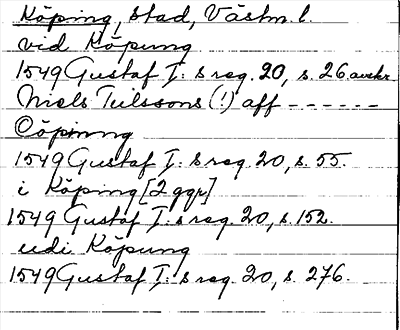 Köping, stad, Västm. l.
vid Köpung
1549 Gustaf I:s reg. 20, s. 26. avskr.
Niels Tulssons (!) aff ------
Cöpinng
1549 Gustaf I:s reg. 20, s. 55.
i Köping [2 ggr]
1549 Gustaf I:s reg. 20, s. 152.
udi Köpung
1549 Gustaf I:s reg. 20, s. 276.